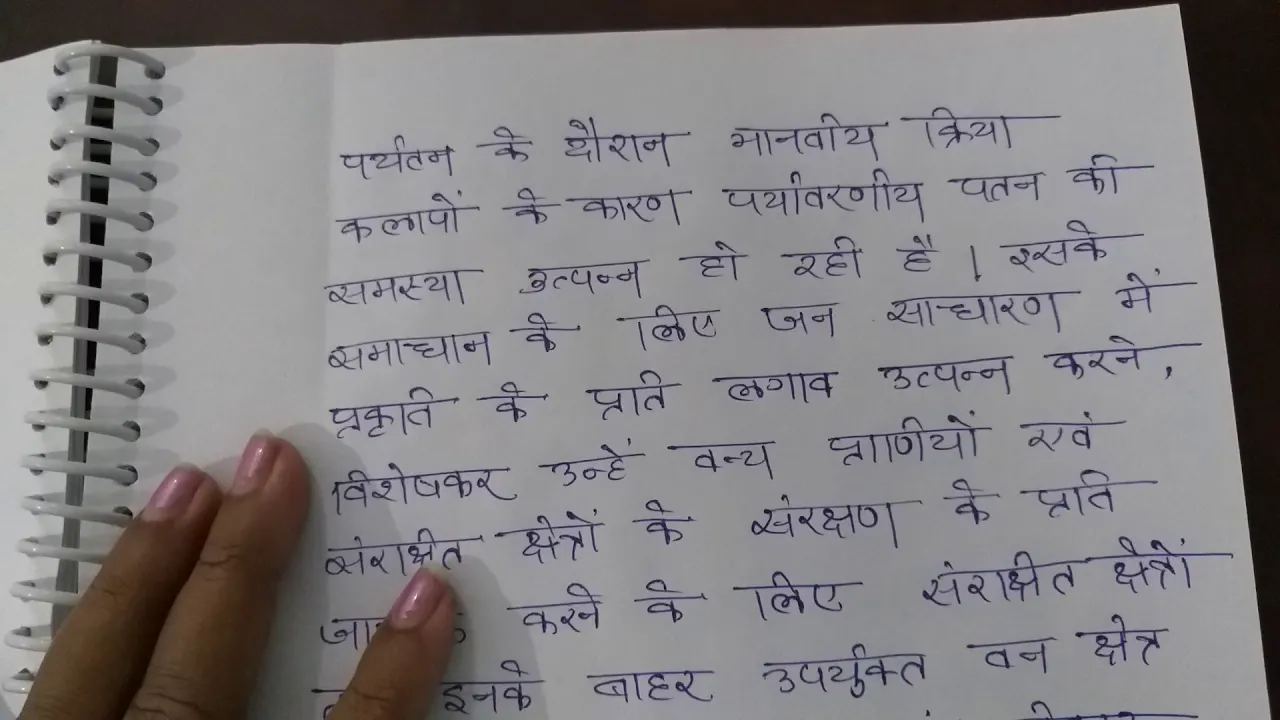 पर्यतन के दौरान मानवीय क्रिया
कलापों के कारण पर्यावरणीय पतन की
समस्या उत्पन्न हो रही है । इसके
समाधान के लिए जन साधारण में
प्रकृति के प्रति लगाव उत्पन्न करने,
विशेषकर उन्हें वन्य प्राणीयों एवं
संरक्षित क्षेत्रों के संरक्षण के प्रति
करने के लिए संरक्षित क्षेत्रों
इनके बाहर उपर्युक्त वन क्षेत्र